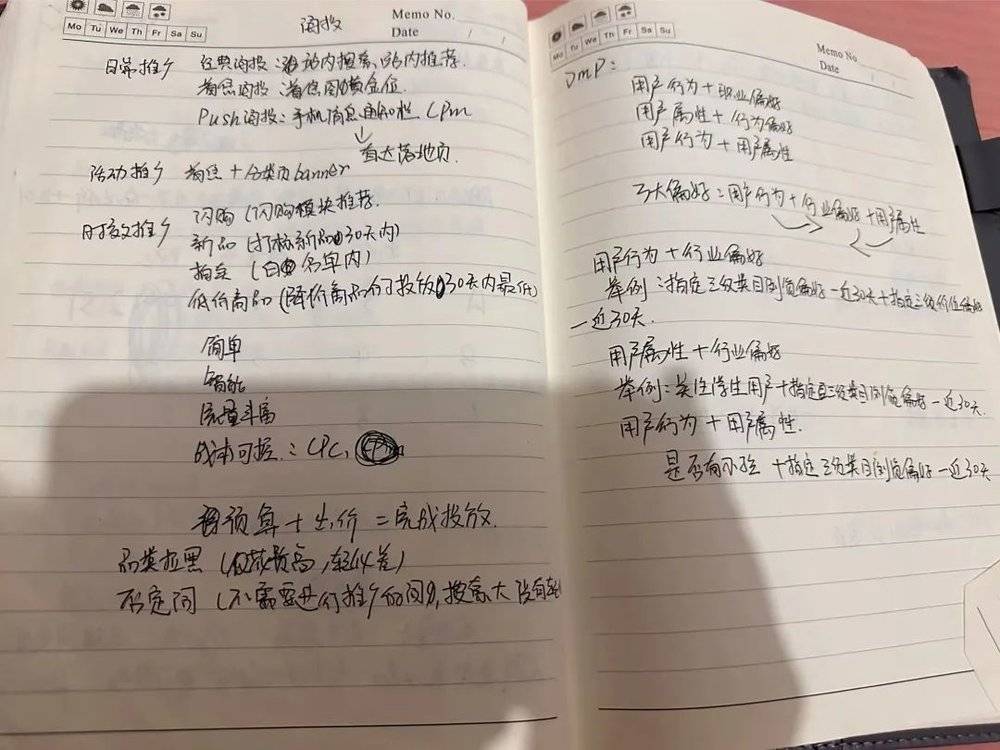 Memo No.
Mo Tu We Th Fr Sa Su
Date / /
海投
日常推广 经典海投:站内搜索、站内推荐.
首焦海投:首焦图黄金位.
Push海投:手机消息通知栏 CPM
首达落地页.
活动推广 首焦+分类页banner
时效推广 闪购(闪购模块推荐.
新品(打标新品30天内)
指定(白名单内)
低价商品(降价商品 30天内最低)
简单
智能
流量丰富
成本可控:CPC、
预算+出价=完成投放.
品类拉黑(花费高,转化差)
否定词(不需要进行推广的词,搜索大没有转
Memo No
Mo Tu We Th Fr Sa Su
Date / /
DMP:
用户行为+职业偏好
用户属性+行为偏好
用户行为+用户属性
三大偏好:用户行为+行业偏好+用户属性
用户行为+行业偏好
举例:指定三级类目浏览偏好-近30天+指定三级价值偏好
-近30天.
用户属性+行业偏好
举例:关注学生用户+指定三级类目浏览偏好-近30天.
用户行为+用户属性.
是否有小孩+指定三级类目浏览偏好-近30天